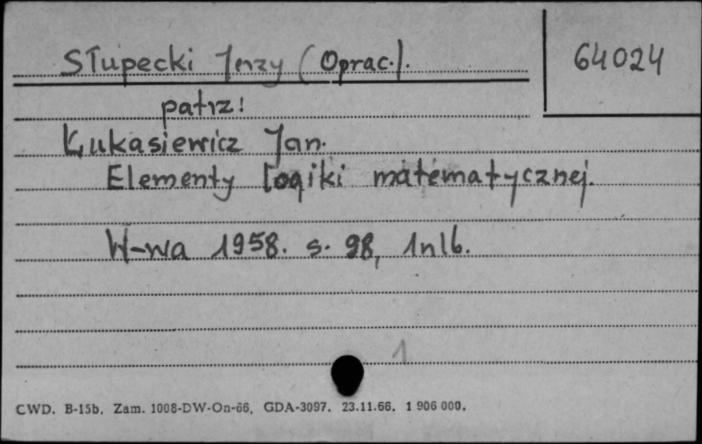 Słupecki Jerzy (Oprac.).
64024
patrz!
Łukasiewicz Jan.
Elementy logiki matematycznej.
W-wa 1958. s. 98, 1nlb.
1
CWD. B-15b. Zam. 1008-DW-On-66. GDA-3097. 23.11.66. 1 906 000.